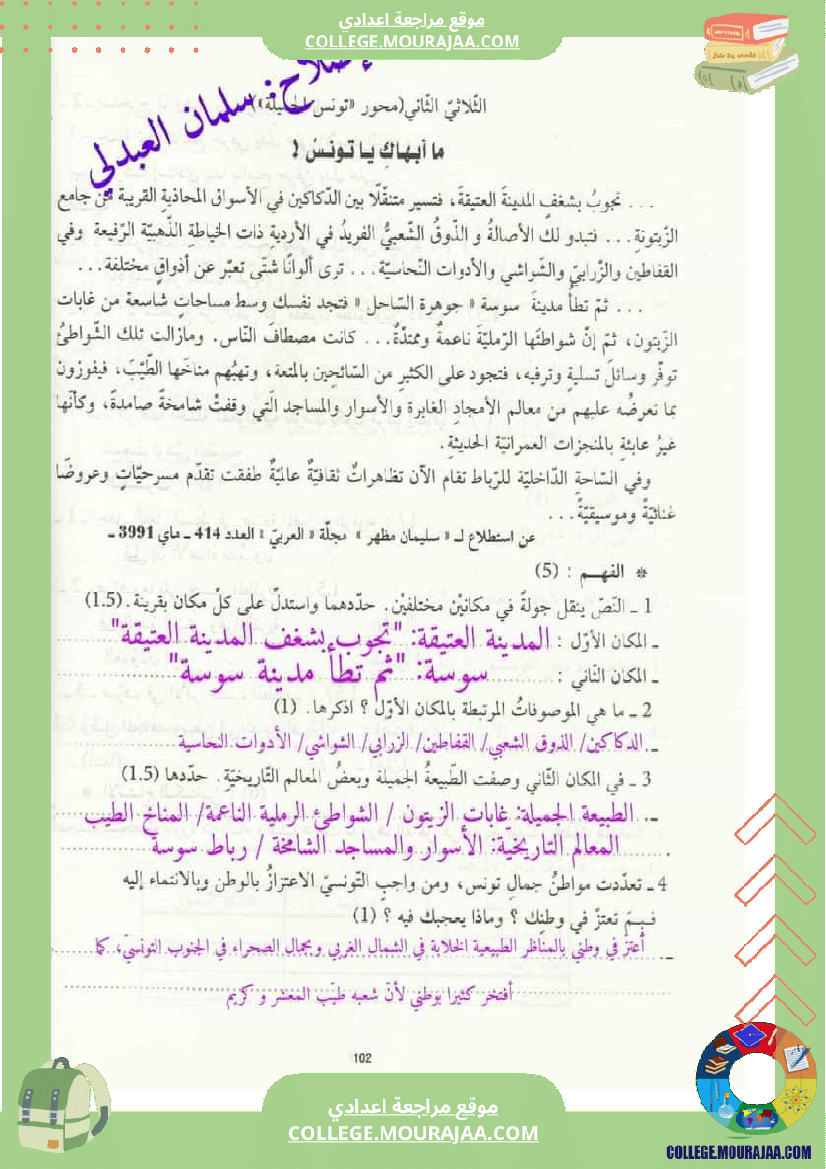 موقع مراجعة اعدادي
COLLEGE.MOURAJAA.COM
إصلاح: سلمان العبدلي
الثلاثيّ الثّاني (محور «تونس الجميلة»)
ما أبهاكِ يا تونسُ !
... تجوبُ بشغفٍ المدينةَ العتيقةَ، فتسير متنقّلًا بين الدّكاكين في الأسواق المحاذيةِ القريبة من جامع
الزّيتونةِ... فتبدو لك الأصالةُ و الذّوقُ الشّعبيُّ الفريدُ في الأرديةِ ذات الخياطةِ الذّهبيّة الرّفيعة وفي
القفاطين والزّرابيّ والشّواشي والأدوات النّحاسيّة... ترى ألوانًا شتّى تعبّر عن أذواقٍ مختلفة...
... ثمّ تطأُ مدينةَ سوسة « جوهرة السّاحل » فتجد نفسك وسط مساحاتٍ شاسعة من غابات
الزّيتون، ثمّ إنّ شواطئَها الرّمليّةَ ناعمةٌ وممتدّةٌ... كانت مصطافَ النّاس. ومازالت تلك الشّواطئُ
توفّر وسائلَ تسليةٍ وترفيه، فتجود على الكثيرِ من السّائحين بالمتعة، وتهبُهم مناخَها الطّيّبَ، فيفوزون
بما تعرضُه عليهم من معالم الأمجادِ الغابرة والأسوار والمساجد الّتي وقفتْ شامخةً صامدةً، وكأنّها
غيرُ عابئةٍ بالمنجزات العمرانيّة الحديثةِ.
وفي السّاحةِ الدّاخليّة للرّباط تقام الآن تظاهراتٌ ثقافيّةٌ عالميّةٌ طفقت تقدّم مسرحيّاتٍ وعروضًا
غنائيّةً وموسيقيّةً...
عن استطلاع لـ « سليمان مظهر » مجلّة « العربيّ » العدد 414 ـ ماي 3991 ـ
* الفهـم : (5)
1 ـ النّصّ ينقل جولةً في مكانيْن مختلفيْن. حدّدهما واستدلّ على كلّ مكان بقرينة. (1.5)
ـ المكان الأوّل : المدينة العتيقة: "تجوب بشغف المدينة العتيقة"
ـ المكان الثّاني : سوسة: "ثم تطأ مدينة سوسة"
2 ـ ما هي الموصوفاتُ المرتبطة بالمكان الأوّل ؟ اذكرها. (1)
ـ الدكاكين/ الذوق الشعبي/ القفاطين/ الزرابي/ الشواشي/ الأدوات النحاسية
3 ـ في المكان الثّاني وصفت الطّبيعةُ الجميلة وبعضُ المعالم التّاريخيّة. حدّدها (1.5)
ـ الطبيعة الجميلة: غابات الزيتون / الشواطئ الرملية الناعمة/ المناخ الطيب
المعالم التاريخيّة: الأسوار والمساجد الشامخة / رباط سوسة
4 ـ تعدّدت مواطنُ جمالِ تونس، ومن واجبِ التّونسيّ الاعتزازُ بالوطن وبالانتماء إليه
فبِمَ تعتزّ في وطنِك ؟ وماذا يعجبك فيه ؟ (1)
ـ أعتزّ في وطني بالمناظر الطبيعية الخلابة في الشمال الغربي وبجمال الصحراء في الجنوب التونسيّ، كما
أفتخر كثيرا بوطني لأنّ شعبه طيّب المعشر و كريم
102
موقع مراجعة اعدادي
COLLEGE.MOURAJAA.COM
COLLEGE.MOURAJAA.COM